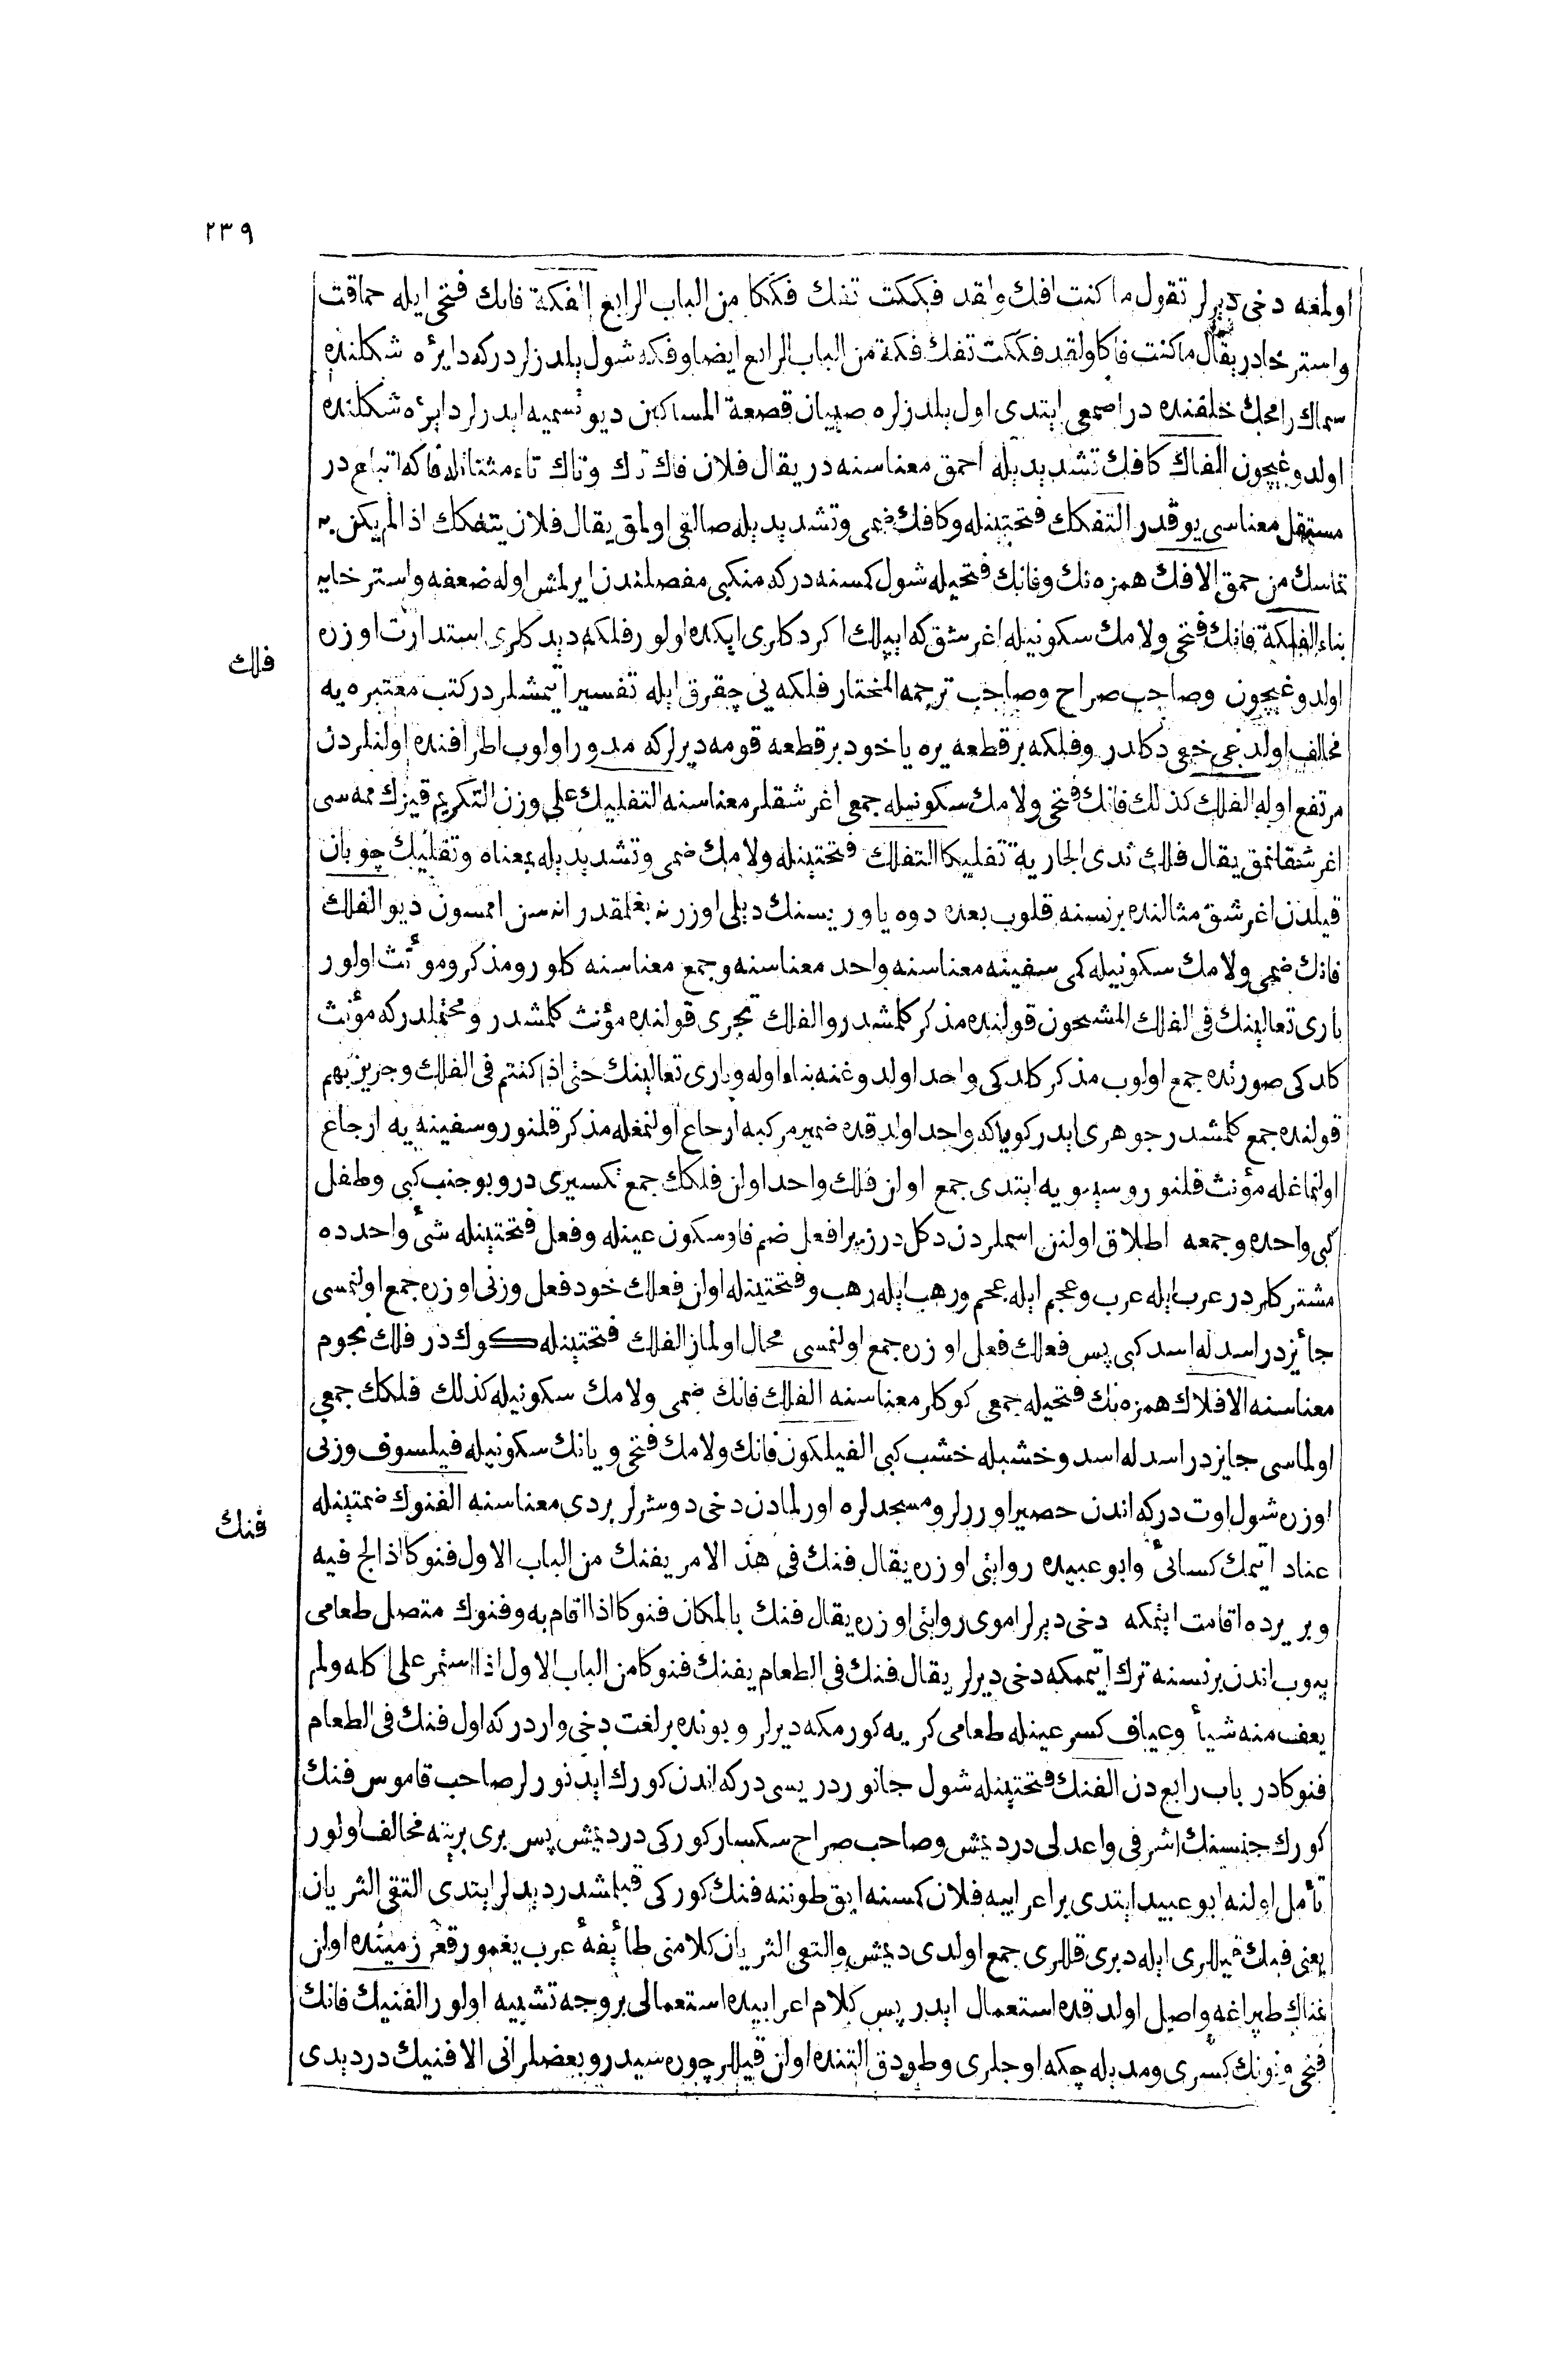 ٢٣٩
اولمغه دخى ديرلر تقول ما كنت افك ولقد فككت تفك فككا من الباب الرابع الفكة فانك فتحى ايله حماقت
واسترخادر يقال ما كنت فاكا ولقد فككت تفك فكة من الباب الرابع ايضا وفكه شول يلدزلردركه دايره شكلنده
سماك رامحك خلفنده در اصمعى ايتدى اول يلدزلره صبيان قصعة المساكين ديو تسميه ايدرلر دايره شكلنده
اولدوغيچون الفاك كافك تشديديله احمق معناسنه در يقال فلان فاك تاك وتاك تاء مثناة ايله فاكه اتباع در
مستقل معناسى يوقدر التفكك فتحتينله وكافك ضمى وتشديديله صالقى اولمق يقال فلان يتفكك اذا لم يكن به
تماسك من حمق الافك همزه نك وفانك فتحيله شول كمسنه دركه منكبى مفصلندن ايرلمش اوله ضعفه واسترخايه
بناء الفلكة فانك فتحى ولامك سكونيله اغرشق كه ايپلك اكردكلرى ايكده اولور فلكه ديدكلرى استدارت اوزره
فلك
اولدوغيچون وصاحب صراح وصاحب ترجمه المختار فلكه يى چقرق ايله تفسير ايتمشلردر كتب معتبره يه
مخالف اولدغى خفى دكلدر وفلكه بر قطعه يره ياخود بر قطعه قومه ديرلركه مدور اولوب اطرافنده اولنلردن
مرتفع اوله الفلك كذلك فانك فتحى ولامك سكونيله جمعى اغرشقلر معناسنه التفليك على وزن التكريم قيزك ممه سى
اغرشقلنمق يقال فلك ثدى الجارية تفليكا التفلك فتحتينله ولامك ضمى وتشديديله بمعناه وتفليك چوبان
قيلدن اغرشق مثالنده برنسنه قلوب بعده دوه ياوريسنك ديلى اوزرنه بغلمقدر اناسن اممسون ديو الفلك
فانك ضمى ولامك سكونيله كمى سفينه معناسنه واحد معناسنه وجمع معناسنه كلور ومذكر ومؤنث اولور
بارى تعالينك فى الفلك المشحون قولنده مذكر كلمشدر والفلك تجرى قولنده مؤنث كلمشدر ومحتملدركه مؤنث
كلدكى صورتده جمع اولوب مذكر كلدكى واحد اولدوغنه بناء اوله وبارى تعالينك حتى اذا كنتم فى الفلك وجرين بهم
قولنده جمع كلمشدر جوهرى ايدر كوياكه واحد اولدقده ضمير مركبه ارجاع اولنمغله مذكر قلنور وسفينه يه ارجاع
اولنماغله مؤنث قلنور وسيبويه ايتدى جمع اولن فلك واحد اولن فلكك جمع تكسيرى در وبو جنب كبى وطفل
كبى واحده وجمعه اطلاق اولنن اسملردن دكلدر زيرا فعل ضم فا وسكون عينله وفعل فتحتينله شئ واحدده
مشتركلردر عرب ايله عرب وعجم ايله عجم ورهب ايله رهب وفتحتينله اولن فعلك خود فعل وزنى اوزره جمع اولنمسى
جائزدر اسد له اسد كبى پس فعلك فعل اوزره جمع اولنمسى محال اولماز الفلك فتحتينله كوك در فلك نجوم
معناسنه الافلاك همزه نك فتحيله جمعى كوكلر معناسنه الفلك فانك ضمى ولامك سكونيله كذلك فلكك جمعى
اولماسى جايزدر اسد له اسد وخشبله خشب كبى الفيلكون فانك ولامك فتحى ويانك سكونيله فيلسوف وزنى
اوزره شول اوت دركه اندن حصير اوررلر ومسجدلره اورلمادن دخى دوشرلر بردى معناسنه الفنوك ضمتينله
فنك
عناد ايتمك كسائى وابو عبيده روايتى اوزره يقال فنك فى هذ الامر يفنك من الباب الاول فنوكا اذا لج فيه
وبر يرده اقامت ايتمكه دخى ديرلر اموى روايتى اوزره يقال فنك بالمكان فنوكا اذا اقام به وفنوك متصل طعامى
يه وب اندن برنسنه ترك ايتممكه دخى ديرلر يقال فنك فى الطعام يفنك فنوكا من الباب الاول اذا استمر على اكله ولم
يعف منه شيأ وعياف كسر عينله طعامى كريه كورمكه ديرلر وبونده بر لغت دخى واردركه اول فنك فى الطعام
فنوكا در باب رابع دن الفنك فتحتينله شول جانور دريسى دركه اندن كورك ايدنورلر صاحب قاموس فنك
كورك جنسينك اشرفى واعدلى در ديمش وصاحب صراح سكسار كوركى در ديمش پس برى برينه مخالف اولور
تأمل اولنه ابو عبيد ايتدى بر اعرابيه فلان كمسنه ايق طوننه فنك كوركى قپلمشدر ديدلر ايتدى التقى الثريان
يعنى فنك قيللرى ايله دبرى قللرى جمع اولدى ديمش والتقى الثريان كلامنى طائفهٔ عرب يغمور قعر زمينده اولن
نمناك طپراغه واصل اولدقده استعمال ايدر پس كلام اعرابيده استعمالى بر وجه تشبيه اولور الفنيك فانك
فتحى ونونك كسرى ومديله چكه اوجلرى وطودق التنده اولن قيللر چوره سيدر وبعضلر انى الافنيك در ديدى